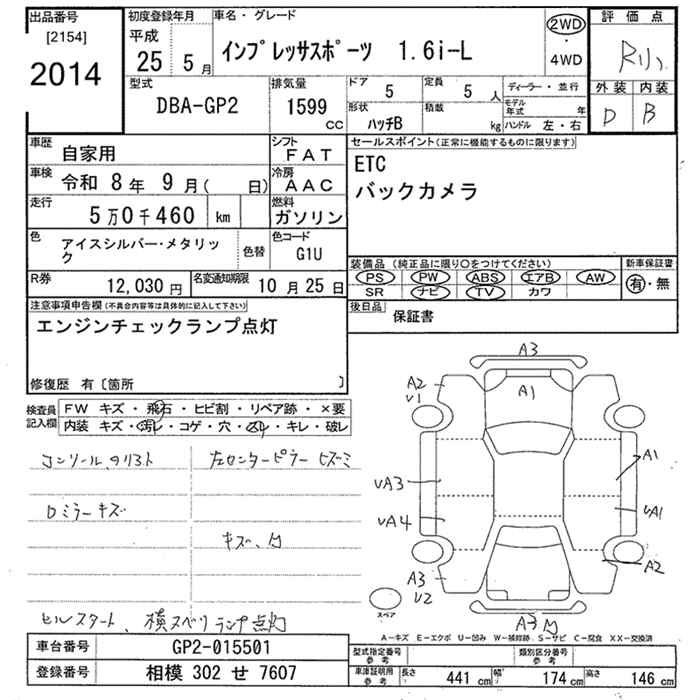 出品番号
[2154]
2014
初度登録年月
平成
25 5 月
車名・グレード
インプレッサスポーツ 1.6i-L
2WD
・
4WD
評価点
外装 内装
D B
型式
DBA-GP2
排気量
1599 CC
ドア
5
定員
5 人
形状
ハッチB
積載
kg
ディーラー・並行
モデル年式 年
ハンドル 左・右
車歴
自家用
シフト
FAT
車検
令和 8年 9月( 日)
冷房
AAC
走行
5万0千460 km
燃料
ガソリン
色
アイスシルバー・メタリック
色替
色コード
G1U
R券
12,030 円
名変通知期限
10 月 25 日
セールスポイント(正常に機能するものに限ります)
ETC
バックカメラ
装備品(純正品に限り○をつけてください)
PS PW ABS エアB AW
SR ナビ TV カワ
新車保証書
有・無
後日品
保証書
注意事項申告欄(不具合内容等は具体的に記入して下さい)
エンジンチェックランプ点灯
修復歴 有〔箇所 〕
検査員記入欄
FW キズ・飛石・ヒビ割・リペア跡・×要
内装 キズ・汚レ・コゲ・穴・スレ・キレ・破レ
コンソール、クリスト
左センターピラーヒズミ
Dミラーキズ
キズ、凹
ヒルスタート、横スベリランプ点灯
A3
A2
U1
A1
A1
UA3
UA4
UA1
A2
A3
U2
A3凹
スペア
A-キズ E-エクボ U-凹み W-補修跡 S-サビ C-腐食 XX-交換済
車台番号
GP2-015501
登録番号
相模 302 せ 7607
型式指定番号
参考
類別区分番号
参考
車庫証明用
参考
長さ 441 cm
幅 174 cm
高さ 146 cm